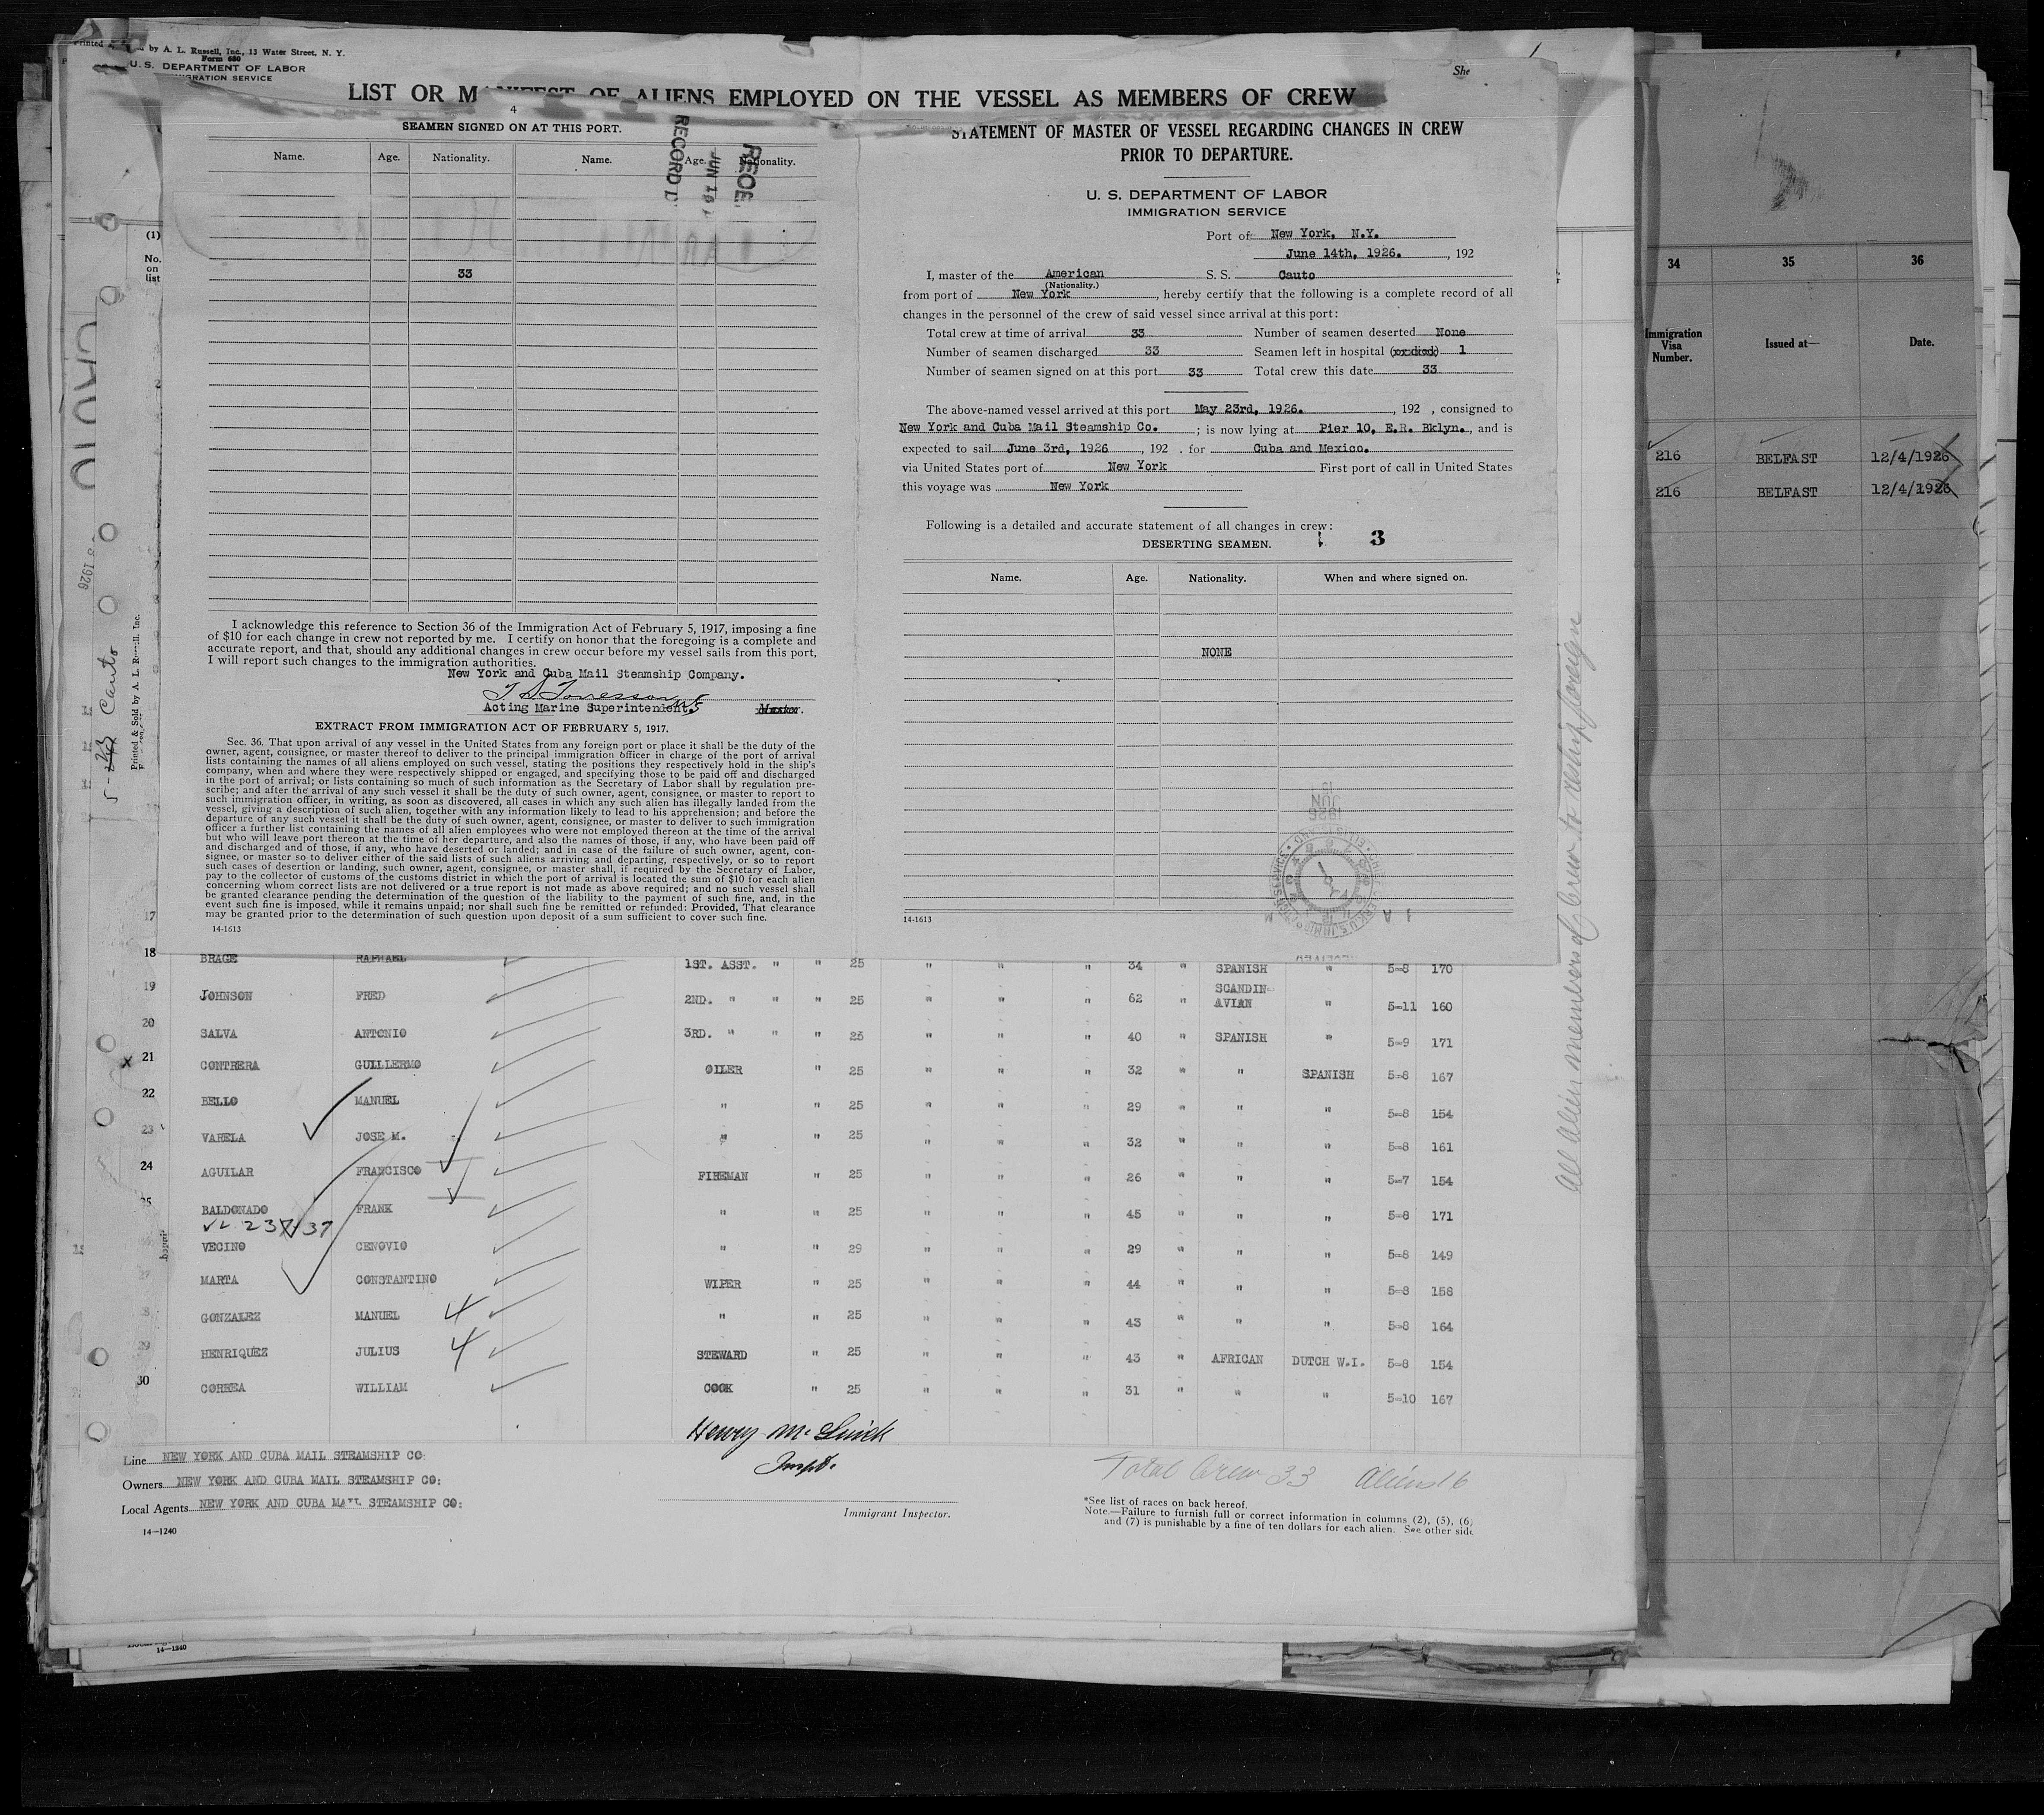 by A. L. Russell, Inc., 13 Water Street, N. Y.
Form 680
U. S. DEPARTMENT OF LABOR
IMMIGRATION SERVICE
LIST OR MANIFEST OF ALIENS EMPLOYED ON THE VESSEL AS MEMBERS OF CREW
4
SEAMEN SIGNED ON AT THIS PORT.
Name. Age. Nationality. Name. Age. Nationality.
33
I acknowledge this reference to Section 36 of the Immigration Act of February 5, 1917, imposing a fine
of $10 for each change in crew not reported by me. I certify on honor that the foregoing is a complete and
accurate report, and that, should any additional changes in crew occur before my vessel sails from this port,
I will report such changes to the immigration authorities.
New York and Cuba Mail Steamship Company.
Acting Marine Superintendent.
Master.
EXTRACT FROM IMMIGRATION ACT OF FEBRUARY 5, 1917.
Sec. 36. That upon arrival of any vessel in the United States from any foreign port or place it shall be the duty of the
owner, agent, consignee, or master thereof to deliver to the principal immigration officer in charge of the port of arrival
lists containing the names of all aliens employed on such vessel, stating the positions they respectively hold in the ship's
company, when and where they were respectively shipped or engaged, and specifying those to be paid off and discharged
in the port of arrival; or lists containing so much of such information as the Secretary of Labor shall by regulation pre-
scribe; and after the arrival of any such vessel it shall be the duty of such owner, agent, consignee, or master to report to
such immigration officer, in writing, as soon as discovered, all cases in which any such alien has illegally landed from the
vessel, giving a description of such alien, together with any information likely to lead to his apprehension; and before the
departure of any such vessel it shall be the duty of such owner, agent, consignee, or master to deliver to such immigration
officer a further list containing the names of all alien employees who were not employed thereon at the time of the arrival
but who will leave port thereon at the time of her departure, and also the names of those, if any, who have been paid off
and discharged and of those, if any, who have deserted or landed; and in case of the failure of such owner, agent, con-
signee, or master so to deliver either of the said lists of such aliens arriving and departing, respectively, or so to report
such cases of desertion or landing, such owner, agent, consignee, or master shall, if required by the Secretary of Labor,
pay to the collector of customs of the customs district in which the port of arrival is located the sum of $10 for each alien
concerning whom correct lists are not delivered or a true report is not made as above required; and no such vessel shall
be granted clearance pending the determination of the question of the liability to the payment of such fine, and, in the
event such fine is imposed, while it remains unpaid; nor shall such fine be remitted or refunded: Provided, That clearance
may be granted prior to the determination of such question upon deposit of a sum sufficient to cover such fine.
14-1613
STATEMENT OF MASTER OF VESSEL REGARDING CHANGES IN CREW
PRIOR TO DEPARTURE.
U. S. DEPARTMENT OF LABOR
IMMIGRATION SERVICE
Port of New York, N.Y.
June 14th, 1926. , 192
I, master of the American S. S. Cauto
(Nationality.)
from port of New York, hereby certify that the following is a complete record of all
changes in the personnel of the crew of said vessel since arrival at this port:
Total crew at time of arrival 33 Number of seamen deserted None
Number of seamen discharged 33 Seamen left in hospital (or died) 1
Number of seamen signed on at this port 33 Total crew this date 33
The above-named vessel arrived at this port May 23rd, 1926. , 192 , consigned to
New York and Cuba Mail Steamship Co. ; is now lying at Pier 10, E.R. Bklyn., and is
expected to sail June 3rd, 1926 , 192 . for Cuba and Mexico.
via United States port of New York First port of call in United States
this voyage was New York
Following is a detailed and accurate statement of all changes in crew:
DESERTING SEAMEN. 3
Name. Age. Nationality. When and where signed on.
NONE
14-1613
34 35 36
Immigration Visa Number. Issued at— Date.
216 BELFAST 12/4/1926
216 BELFAST 12/4/1926
All Alien members of Crew to reship foreign
(1)
No. on list
Cauto
18 BRAGE RAFHAEL 1ST. ASST. " " 25 " " " 34 " SPANISH " 5-8 170
19 JOHNSON FRED 2ND. " " " 25 " " " 62 " SCANDIN-AVIAN " 5-11 160
20 SALVA ANTONIO 3RD. " " " 25 " " " 40 " SPANISH " 5-9 171
x 21 CONTRERA GUILLERMO OILER " 25 " " " 32 " " SPANISH 5-8 167
22 BELLO MANUEL " " 25 " " " 29 " " " 5-8 154
23 VARELA JOSE M. " " 25 " " " 32 " " " 5-8 161
24 AGUILAR FRANCISCO FIREMAN " 25 " " " 26 " " " 5-7 154
25 BALDONADO FRANK " " 25 " " " 45 " " " 5-8 171
VECINO CENOVIO " " 29 " " " 29 " " " 5-8 149
27 MARTA CONSTANTINO WIPER " 25 " " " 44 " " " 5-8 158
28 GONZALEZ MANUEL 4 " " 25 " " " 43 " " " 5-8 164
29 HENRIQUEZ JULIUS 4 STEWARD " 25 " " " 43 " AFRICAN DUTCH W.I. 5-8 154
30 CORREA WILLIAM COOK " 25 " " " 31 " " " 5-10 167
Line NEW YORK AND CUBA MAIL STEAMSHIP CO:
Owners NEW YORK AND CUBA MAIL STEAMSHIP CO:
Local Agents NEW YORK AND CUBA MAIL STEAMSHIP CO:
14-1240
Immigrant Inspector.
Total Crew 33 Aliens 16
*See list of races on back hereof.
Note.—Failure to furnish full or correct information in columns (2), (5), (6)
and (7) is punishable by a fine of ten dollars for each alien. See other side
14-1240